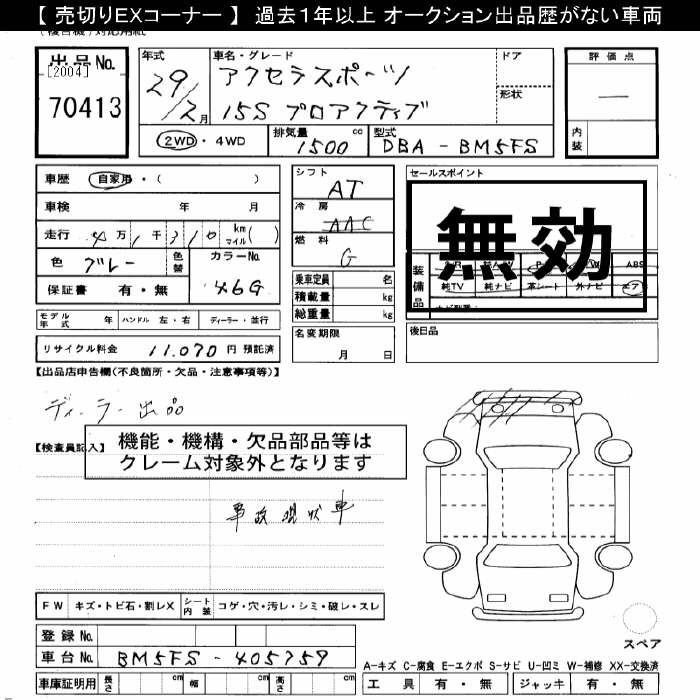 【 売切りEXコーナー 】 過去１年以上 オークション出品歴がない車両
出品 No.
[2004]
70413
年式
29/2月
車名・グレード
アクセラスポーツ
15S プロアクティブ
ドア
形状
評価点
―
内装
2WD ・ 4WD
排気量
1500 cc
型式
DBA - BM5FS
車歴 自家用・( )
車検 年 月
走行 4万1千310 km マイル( )
色 ブレー 色替 カラーNo. 46G
保証書 有・無
シフト
AT
冷房
AAC
燃料
G
乗車定員 名
積載量 kg
総重量 kg
セールスポイント
無効
装備品
ABS
純TV 純ナビ 革シート 外ナビ エアB
後日品
モデル年式 年 ハンドル 左・右 ディーラー・並行
名変期限
月 日
リサイクル料金 11,070 円 預託済
【出品店申告欄(不良箇所・欠品・注意事項等)】
ディーラー出品
【検査員記入】
機能・機構・欠品部品等は
クレーム対象外となります
事故現状車
FW キズ・トビ石・割レX シート内装 コゲ・穴・汚レ・シミ・破レ・スレ
登録 No.
車台 No. BM5FS - 405759
車庫証明用 長さ cm 幅 cm 高さ cm
スペア
A-キズ C-腐食 E-エクボ S-サビ U-凹ミ W-補修 XX-交換済
工具 有・無 ジャッキ 有・無